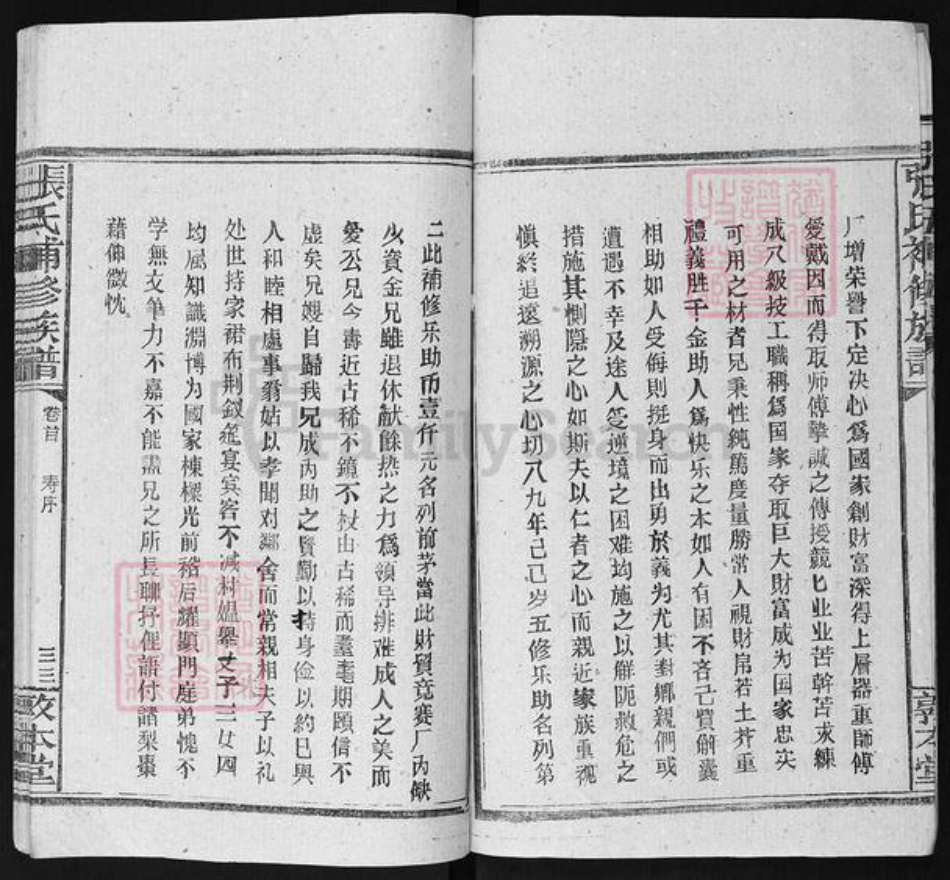 張氏補修族譜
厂增荣譽下定决心爲國家創財富深得上層器重師傅
愛戴因而得取师傅摯誠之傳授競匕业业苦幹苦求練
成八級技工職稱爲国家夺取巨大財富成为国家忠实
可用之材者兄秉性純篤度量勝常人視財帛若土芥重
禮義胜千金助人爲快乐之本如人有困不吝己貲解囊
相助如人受侮則挺身而出勇於義为尤其對鄉親們或
遭遇不幸及途人受逆境之困难均施之以解阨救危之
措施其惻隱之心如斯夫以仁者之心而親近家族重视
慎終追遠溯源之心切八九年己巳岁五修乐助名列第
敦本堂
二此補修乐助币壹仟元名列前茅當此財貿竞赛厂内缺
少資金兄雖退休献餘热之力爲領导排难成人之美而
爱厶兄今壽近古稀不鏡不杖由古稀而耋耄期頤信不
虚矣兄嫂自歸我兄成内助之賢勤以持身俭以約己與
人和睦相處事翁姑以孝聞对鄰舍而常親相夫子以礼
处世持家裙布荆釵筵宴宾客不减村媪舉丈子三女四
均属知識淵博为國家棟樑光前裕后耀顯門庭弟愧不
学無文筆力不嘉不能盡兄之所長聊抒俚語付諸梨棗
藉伸微忱
張氏補修族譜
卷首
寿序
三三
敦本堂